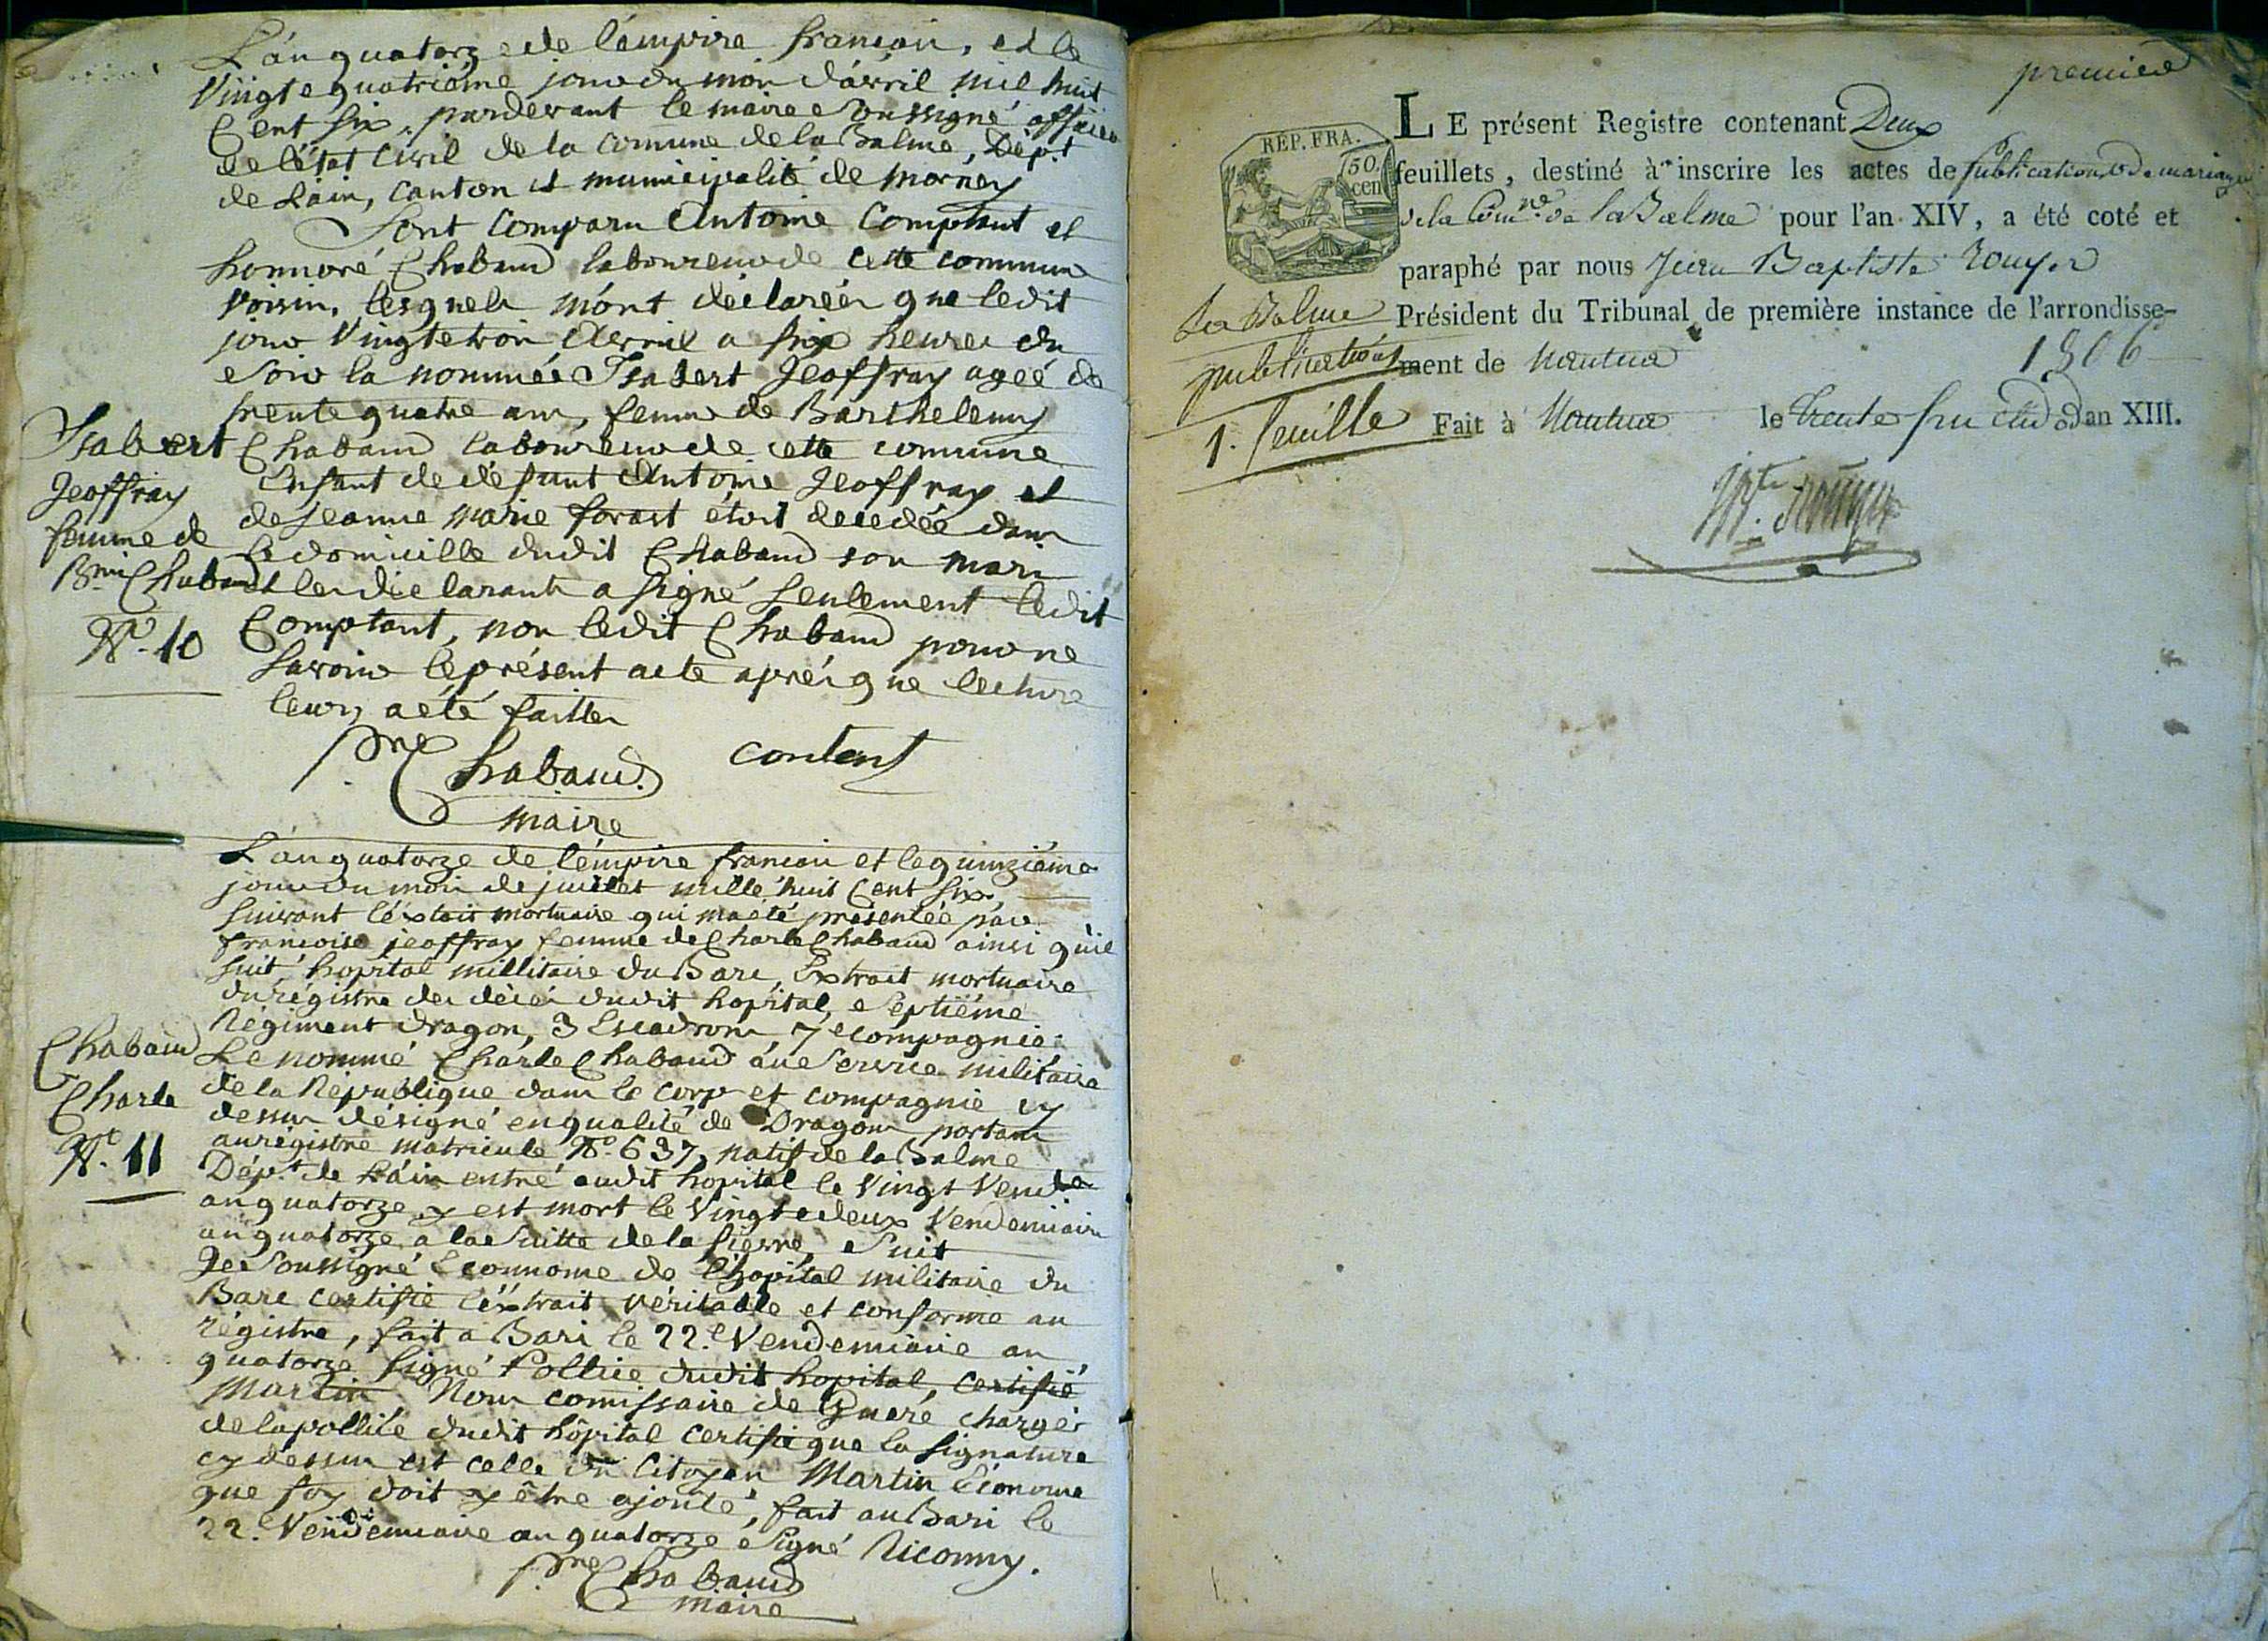 L'an quatorze de l'empire francois, et le
vingt e quatriéme jour du mois d'avril mil huit
Cent Six, pardevant le maire soussigné officier
de l'état civil de la comune de la Balme, Dép.t
de Lain, canton et municipalité de mornay
Sont comparu Antoine Comptant et
honnoré Chabaud laboureur de cette commune
voisin, lesquels m'ont déclarées que ledit
jour vingtetrois avril a six heures du
soir la nommée Isabert Jeoffray ageé de
trente quatre ans, femme de Barthelemy
Chabaud laboureur de cette comune
Enfant de défunt Antoine Jeoffray et
de Jeanne Marie forast étoit décédée dans
le domicille dudit Chabaud son mari
et les déclarants a signé seulement ledit
Comptant, non ledit Chabaud pour ne
savoir le présent acte aprés que lecture
leurs a été faittes
Isabert
Jeoffray
femme de
B.mi Chabaud
N.o 10
p.re Chabaud content
maire
L'an quatorze de l'émpire francois et le quinziéme
jour du mois de juillet mille huit Cent Six,
suivant l'éxtrait mortuaire qui m'a été présentée par
francoise jeoffray femme de Charle Chabaud ainsi qu'il
suit hopital millitaire du Bari, Extrait mortuaire
du régistre des décés dudit hopital, Septiéme
Régiment dragon, 3 Escadrons, 7e compagnie
Le nommé Charle Chabaud au Service militaire
de la République dans le corp et compagnie cy
dessus désigné en qualité de Dragons portant
au régistre matricule N.o 637, natif de la Balme
Dép.t de L'ain entré audit hopital le vingt vend.re
an quatorze y est mort le vingtedeux vendemiaire
an quatorze a la Suitte de la fiévre, Suit
Je Soussigné Econnome de l'hopital militaire du
Bari certifie l'éxtrait véritable et conforme au
régistre, fait a Bari le 22.e vendemiaire an
quatorze signé Pollice dudit hopital, certifié
Martin Nous comissaire de Guere chargér
de la pollice dudit hôpital certifie que la signature
cy dessus est celle du Citoyen Martin Econome
que foy doit y être ajouté, fait au Bari le
22.e vendémiaire an quatorze Signé Riconny.
Chabaud
Charle
N.o 11
p.re Chabaud
maire
premier
RÉP. FRA.
50.
cen
LE présent Registre contenant Deux
feuillets, destiné à inscrire les actes de publications de mariages
de la Com.ne de la Balme pour l'an XIV, a été coté et
paraphé par nous Jean Baptiste Rouyer
Président du Tribunal de première instance de l'arrondisse-
ment de Nantua 1806
Fait à Nantua le trente fructid.or an XIII.
La Balme
publications
1. feuille